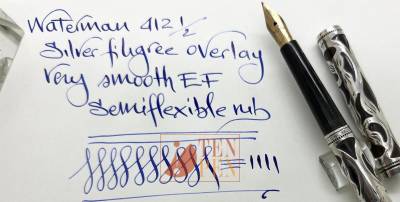 Waterman 412 1/2
Silver filigree overlay
very smooth EF
Semiflexible nib
TEN
PEN